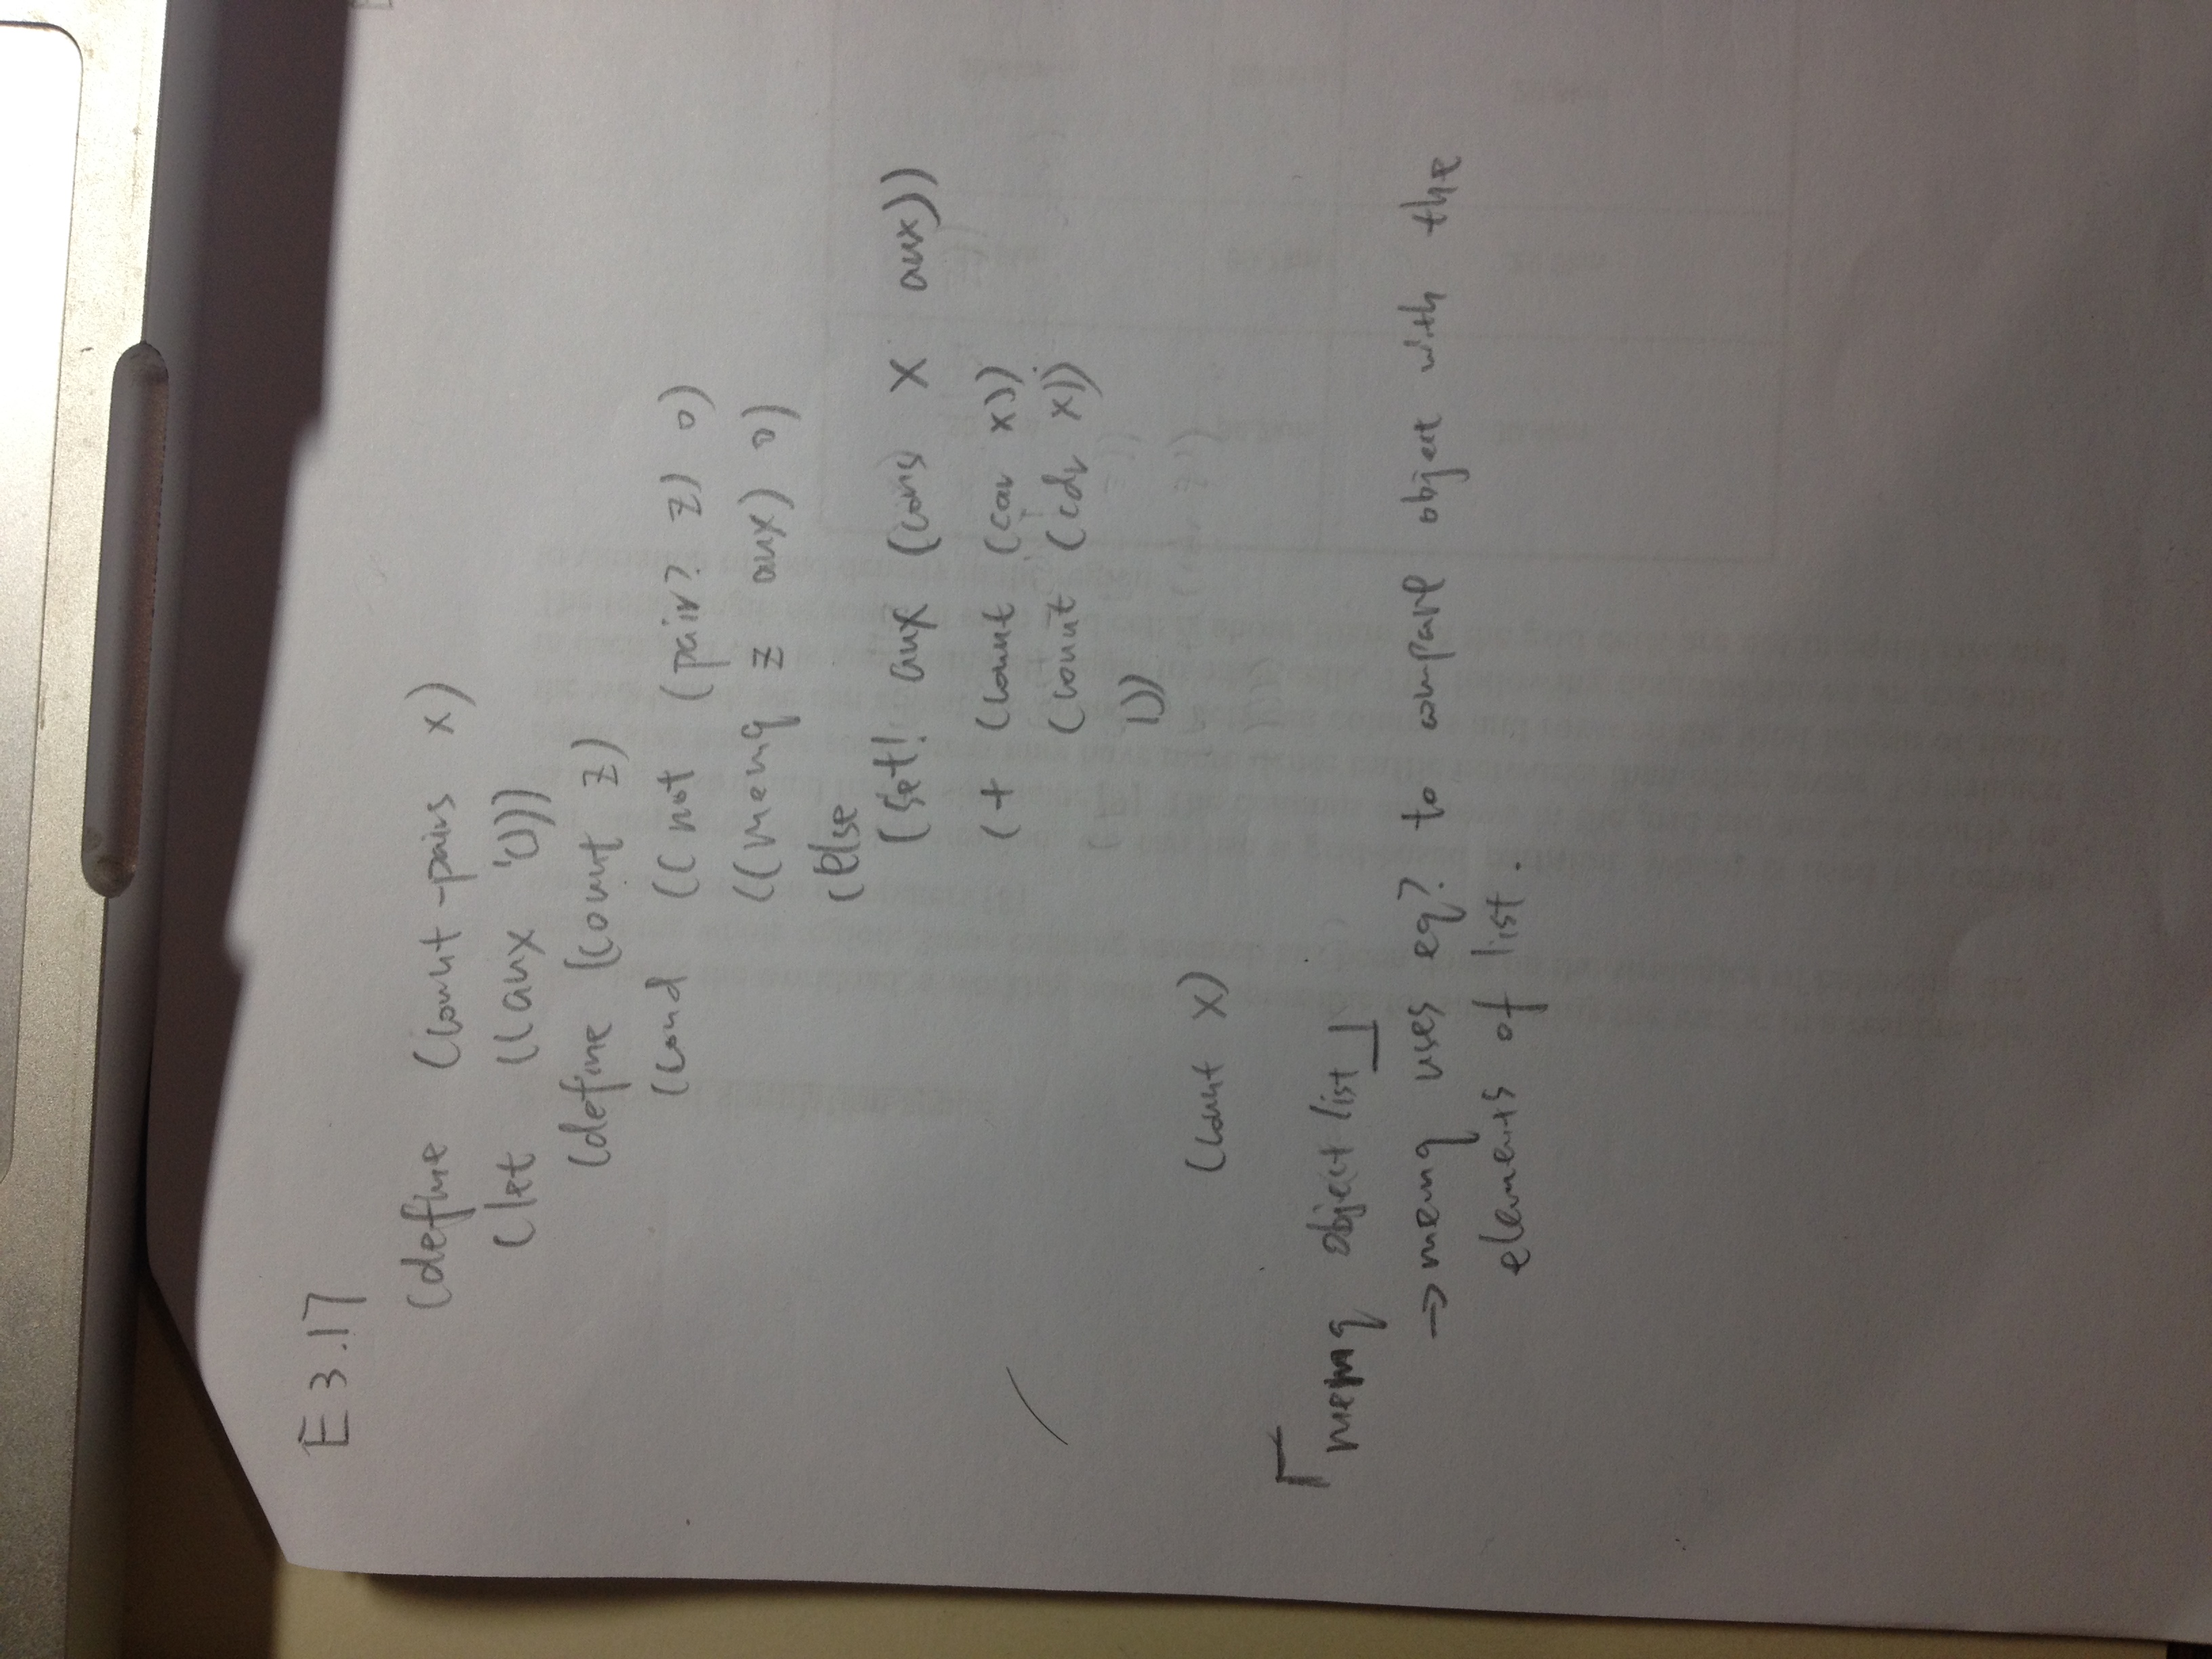 E 3.17
(define (count-pairs x)
(let ((aux '()))
(define (count z)
(cond ((not (pair? z) 0)
((memq z aux) 0)
(else
(set! aux (cons x aux))
(+ (count (car x))
(count (cdr x))
1))
(count x)
「memq object list」
→ memq uses eq? to compare object with the
elements of list.